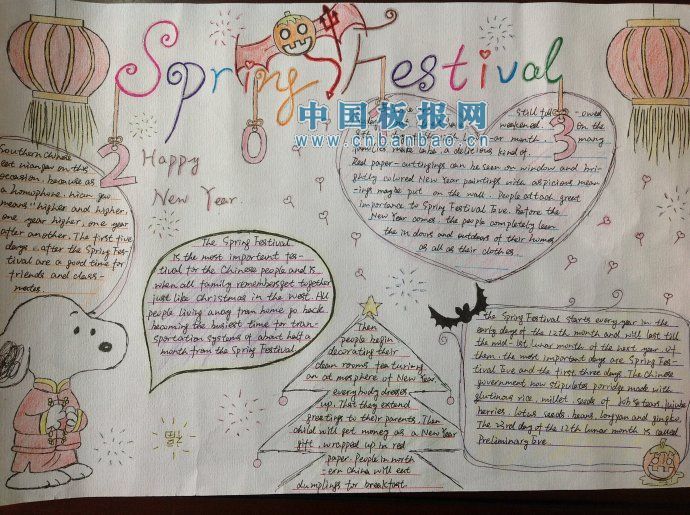 Spring Festival
中国板报网
www.cnbanbao.cn
2 0 3
Happy
New Year
Southern Chinese
eat niangao on this
occasion, because as
a homophone, nian gao
means "higher and higher,
one year higher, one year
after another. The first five
days after the Spring Fe-
stival are a good time for
friends and class-
mates
The Spring Festival
is the most important fes-
tival for the Chinese people and is
when all family remembers get together
just like Christmas in the west. All
people living away from home go back
becoming the busiest time for tran-
sportation systems of about half a
month from the Spring Festival
Still owed
weakened. on the
month many
families make a delicious kind of
Red paper-cuttingings can be seen on window and bri-
ghtly colored New Year paintings with aspicious mean-
ings maybe put on the wall. People attach great
importance to Spring Festival Eve. Before the
New Year comes the people completely
the indoors and outdoors of their homes
as all as their clothes.
Then
people begin
decorating their
clean rooms featuring
an atmosphere of New Year.
everybody dresses
up. That they extend
greetings to their parents. Then
child will get money as a New Year
gift, wrapped up in red
paper. People in north
-ern China will eat
dumplings for breakfast
the Spring Festival starts every year in the
early days of the 12th month and will last till
the mid-1st lunar month of the next year. Of
them, the most important days are Spring Fes-
tival Eve and the first three days. The Chinese
government now stipulates porridge made with
glutinous rice, millet, seeds of Job's tears, jujube
berries, lotus seeds, beans, longyan and gingko.
The 23rd day of the 12th lunar month is called
Preliminary Eve.
福